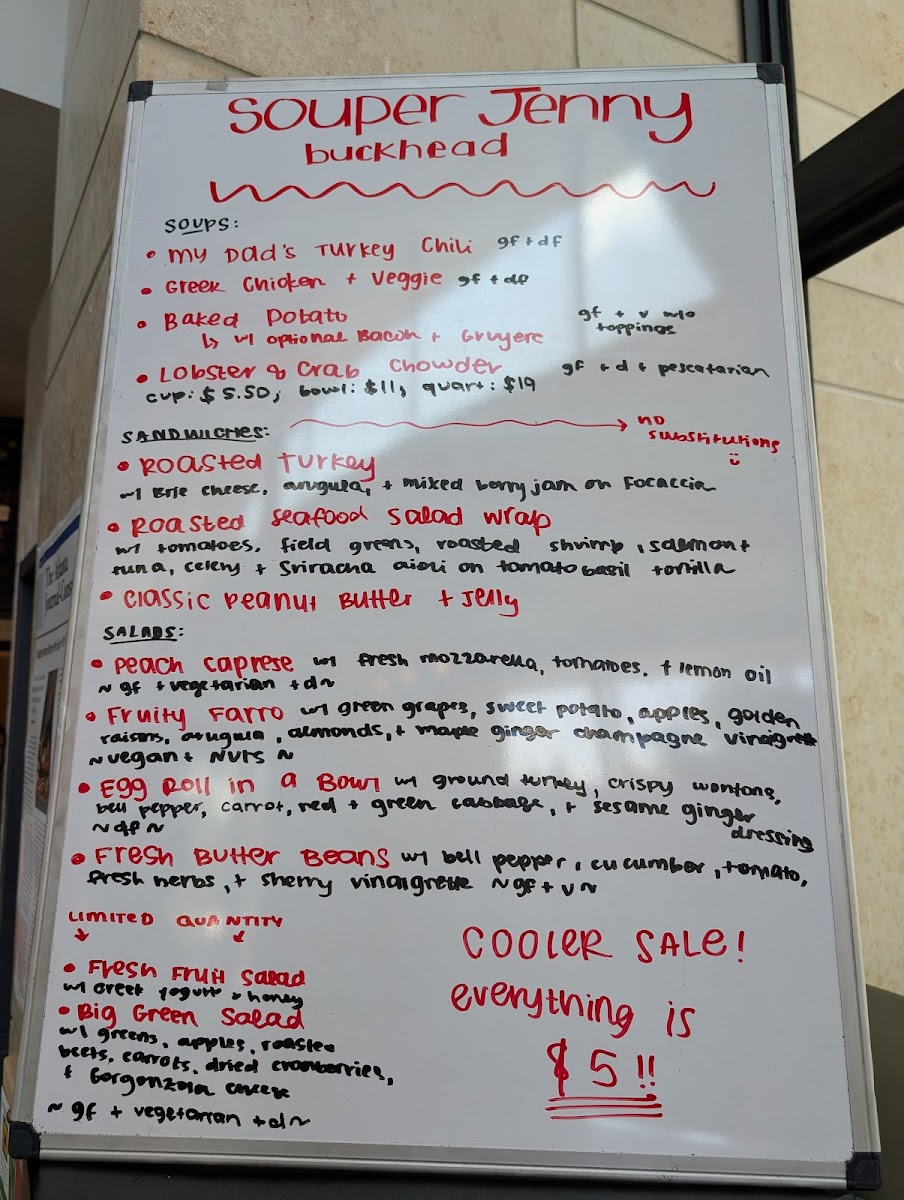 Souper Jenny
buckhead
SOUPS:
• My Dad's Turkey Chili gf + df
• Greek Chicken + Veggie gf + df
• Baked Potato gf + v w/o
toppings
↳ w/ optional Bacon + Gruyere
• Lobster & Crab Chowder gf + d + pescatarian
cup: $5.50; bowl: $11, quart: $19
SANDWICHES: → no
substitutions
• Roasted Turkey
w/ Brie cheese, arugula, + mixed berry jam on Focaccia
• Roasted Seafood Salad Wrap
w/ tomatoes, field greens, roasted shrimp, salmon +
tuna, celery + Sriracha aioli on tomato basil tortilla
• Classic Peanut Butter + Jelly
SALADS:
• Peach Caprese w/ fresh mozzarella, tomatoes, + lemon oil
~ gf + vegetarian + d ~
• Fruity Farro w/ green grapes, sweet potato, apples, golden
raisins, arugula, almonds, + maple ginger champagne vinaigrette
~ vegan + nuts ~
• Egg Roll in a Bowl w/ ground turkey, crispy wontons,
bell pepper, carrot, red + green cabbage, + sesame ginger
dressing
~ df ~
• Fresh Butter Beans w/ bell pepper, cucumber, tomato,
fresh herbs, + sherry vinaigrette ~ gf + v ~
LIMITED QUANTITY
• Fresh Fruit Salad
w/ Greek yogurt + honey
• Big Green Salad
w/ greens, apples, roasted
beets, carrots, dried cranberries,
+ Gorgonzola cheese
~ gf + vegetarian + d ~
COOLER SALE!
everything is
$5!!
The Atlanta
Journal-Const